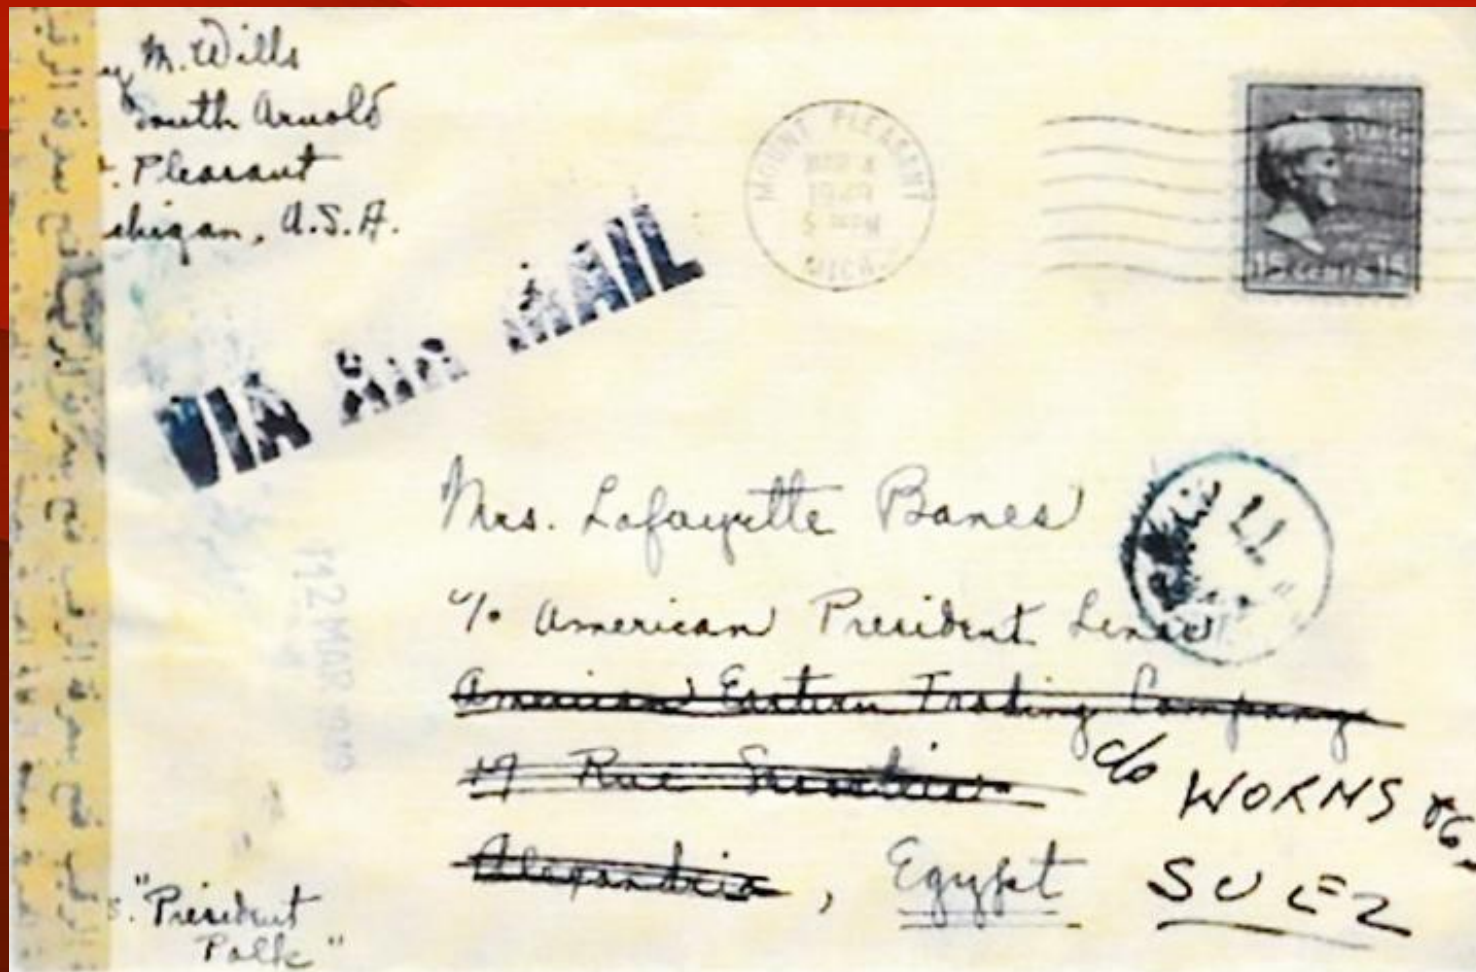 M. Wills
South Arnold
. Pleasant
chigan, U.S.A.
MOUNT PLEASANT
MAR 4
1949
MICH.
UNITED
STATES
15 CENTS 15
VIA AIR MAIL
Mrs. Lafayette Banes
c/o American President Lines
American Eastern Trading Company
17 Rue
Alexandria, Egypt
c/o WORMS & Co.
SUEZ
12 MAR 1949
"President
Polk"
فتح بمعرفة الرقيب